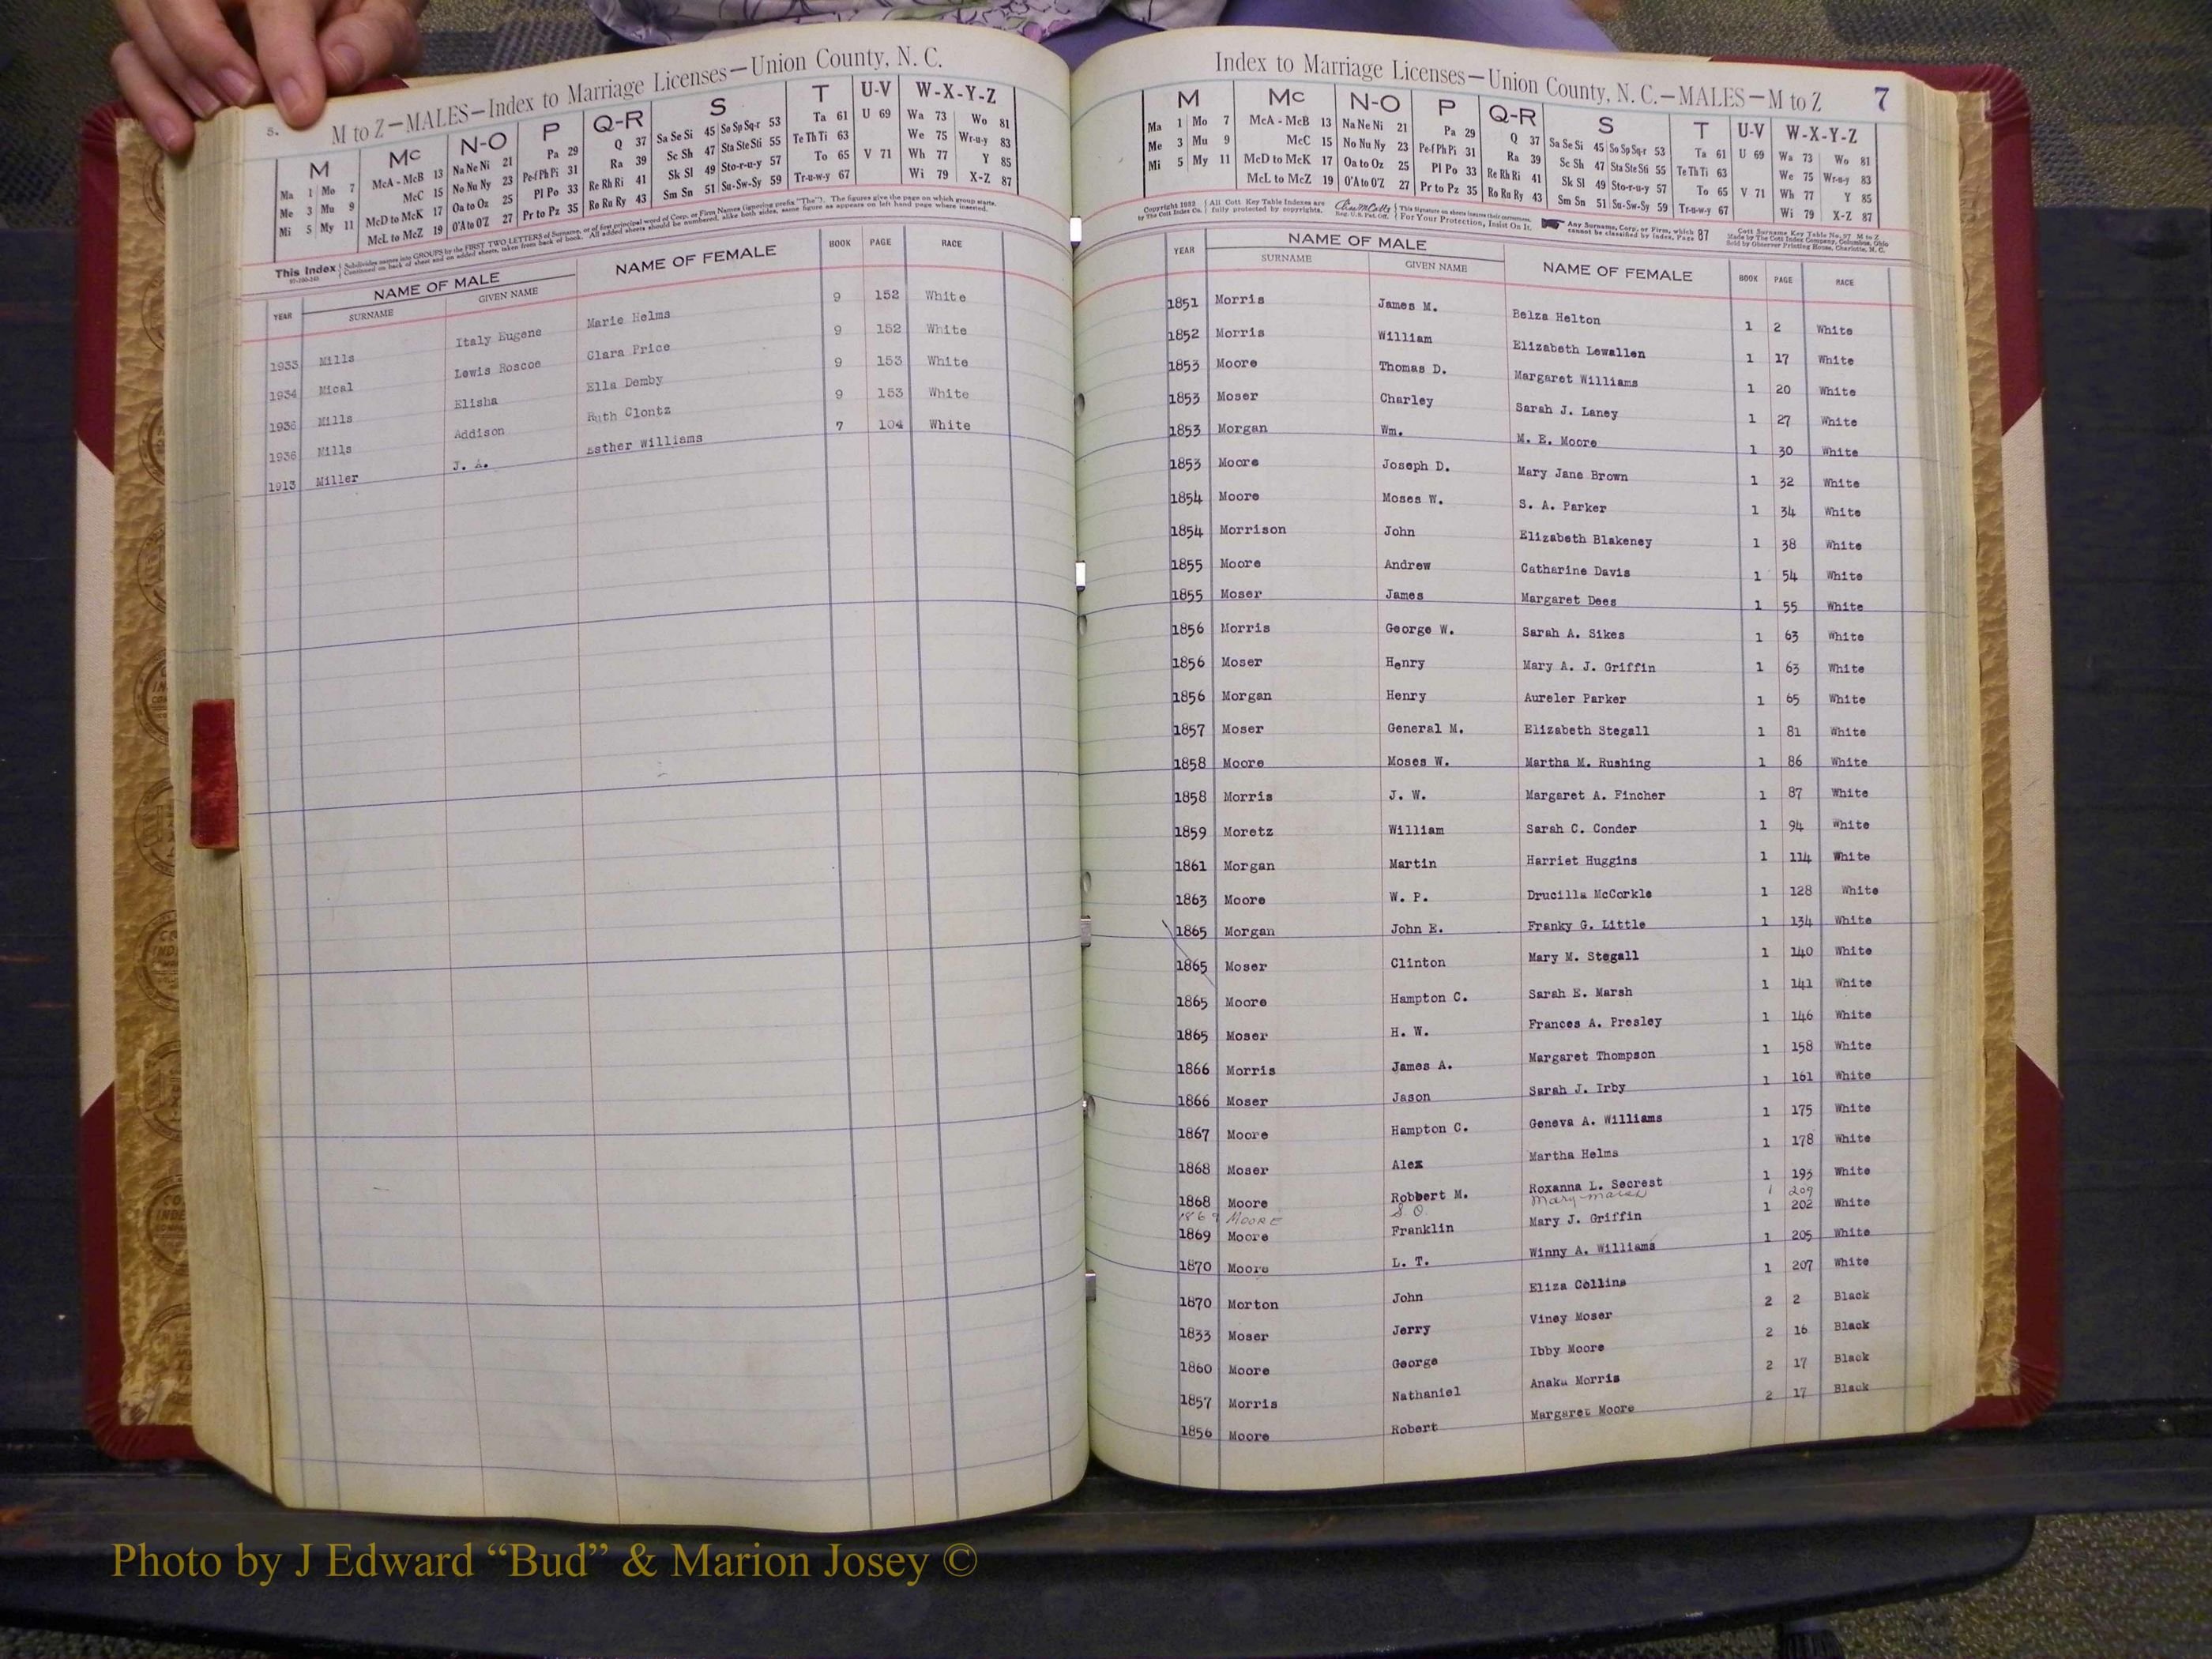 5.
M to Z—MALES—Index to Marriage Licenses—Union County, N. C.
M Mc N-O P Q-R S T U-V W-X-Y-Z
Ma 1 Mo 7 McA - McB 13 Na Ne Ni 21 Pa 29 Q 37 Sa Se Si 45 So Sp Sq-r 53 Ta 61 U 69 Wa 73 Wo 81
Me 3 Mu 9 McC 15 No Nu Ny 23 Pe-f Ph Pi 31 Ra 39 Sc Sh 47 Sta Ste Sti 55 Te Th Ti 63 We 75 Wr-u-y 83
Mi 5 My 11 McD to McK 17 Oa to Oz 25 Pl Po 33 Re Rh Ri 41 Sk Sl 49 Sto-r-u-y 57 To 65 V 71 Wh 77 Y 85
McL to McZ 19 O'A to O'Z 27 Pr to Pz 35 Ro Ru Ry 43 Sm Sn 51 Su-Sw-Sy 59 Tr-u-w-y 67 Wi 79 X-Z 87
This Index Subdivides names into GROUPS by the FIRST TWO LETTERS of Surname, or of first principal word of Corp. or Firm Names (ignoring prefix "The"). The figures give the page on which group starts.
Continued on back of sheet and on added sheets, taken from back of book. All added sheets should be numbered, alike both sides, same figure as appears on left hand page where inserted.
YEAR NAME OF MALE NAME OF FEMALE BOOK PAGE RACE
SURNAME GIVEN NAME
1933 Mills Italy Eugene Marie Helms 9 152 White
1934 Mical Lewis Roscoe Clara Price 9 152 White
1936 Mills Elisha Ella Demby 9 153 White
1936 Mills Addison Ruth Clontz 9 153 White
1913 Miller J. A. Esther Williams 7 104 White
Index to Marriage Licenses—Union County, N. C.—MALES—M to Z 7
M Mc N-O P Q-R S T U-V W-X-Y-Z
Ma 1 Mo 7 McA - McB 13 Na Ne Ni 21 Pa 29 Q 37 Sa Se Si 45 So Sp Sq-r 53 Ta 61 U 69 Wa 73 Wo 81
Me 3 Mu 9 McC 15 No Nu Ny 23 Pe-f Ph Pi 31 Ra 39 Sc Sh 47 Sta Ste Sti 55 Te Th Ti 63 We 75 Wr-u-y 83
Mi 5 My 11 McD to McK 17 Oa to Oz 25 Pl Po 33 Re Rh Ri 41 Sk Sl 49 Sto-r-u-y 57 To 65 V 71 Wh 77 Y 85
McL to McZ 19 O'A to O'Z 27 Pr to Pz 35 Ro Ru Ry 43 Sm Sn 51 Su-Sw-Sy 59 Tr-u-w-y 67 Wi 79 X-Z 87
Copyright 1932 All Cott Key Table Indexes are This Signature on sheets insures their correctness. Any Surname, Corp. or Firm, which Cott Key Table No. 97 M to Z
by The Cott Index Co. fully protected by copyrights. Reg. U.S. Pat. Off. For Your Protection, Insist On It. cannot be classified by Index, Page 87 Made by The Cott Index Company, Columbus, Ohio
Sold by Observer Printing House, Charlotte, N. C.
YEAR NAME OF MALE NAME OF FEMALE BOOK PAGE RACE
SURNAME GIVEN NAME
1851 Morris James M. Belza Helton 1 2 White
1852 Morris William Elizabeth Lewallen 1 17 White
1853 Moore Thomas D. Margaret Williams 1 20 White
1853 Moser Charley Sarah J. Laney 1 27 White
1853 Morgan Wm. M. E. Moore 1 30 White
1853 Moore Joseph D. Mary Jane Brown 1 32 White
1854 Moore Moses W. S. A. Parker 1 34 White
1854 Morrison John Elizabeth Blakeney 1 38 White
1855 Moore Andrew Catharine Davis 1 54 White
1855 Moser James Margaret Dees 1 55 White
1856 Morris George W. Sarah A. Sikes 1 63 White
1856 Moser Henry Mary A. J. Griffin 1 63 White
1856 Morgan Henry Aureler Parker 1 65 White
1857 Moser General M. Elizabeth Stegall 1 81 White
1858 Moore Moses W. Martha M. Rushing 1 86 White
1858 Morris J. W. Margaret A. Fincher 1 87 White
1859 Moretz William Sarah C. Conder 1 94 White
1861 Morgan Martin Harriet Huggins 1 114 White
1863 Moore W. P. Drucilla McCorkle 1 128 White
1865 Morgan John E. Franky G. Little 1 134 White
1865 Moser Clinton Mary M. Stegall 1 140 White
1865 Moore Hampton C. Sarah E. Marsh 1 141 White
1865 Moser H. W. Frances A. Presley 1 146 White
1866 Morris James A. Margaret Thompson 1 158 White
1866 Moser Jason Sarah J. Irby 1 161 White
1867 Moore Hampton C. Geneva A. Williams 1 175 White
1868 Moser Alex Martha Helms 1 178 White
1868 Moore Robbert M. Roxanna L. Secrest 1 193 White
1869 MOORE S. O. Mary 1 209
1869 Moore Franklin Mary J. Griffin 1 202 White
1870 Moore L. T. Winny A. Williams 1 205 White
1870 Morton John Eliza Collins 1 207 White
1833 Moser Jerry Viney Moser 2 2 Black
1860 Moore George Ibby Moore 2 16 Black
1857 Morris Nathaniel Anaka Morris 2 17 Black
1856 Moore Robert Margaret Moore 2 17 Black
Photo by J Edward “Bud” & Marion Josey ©